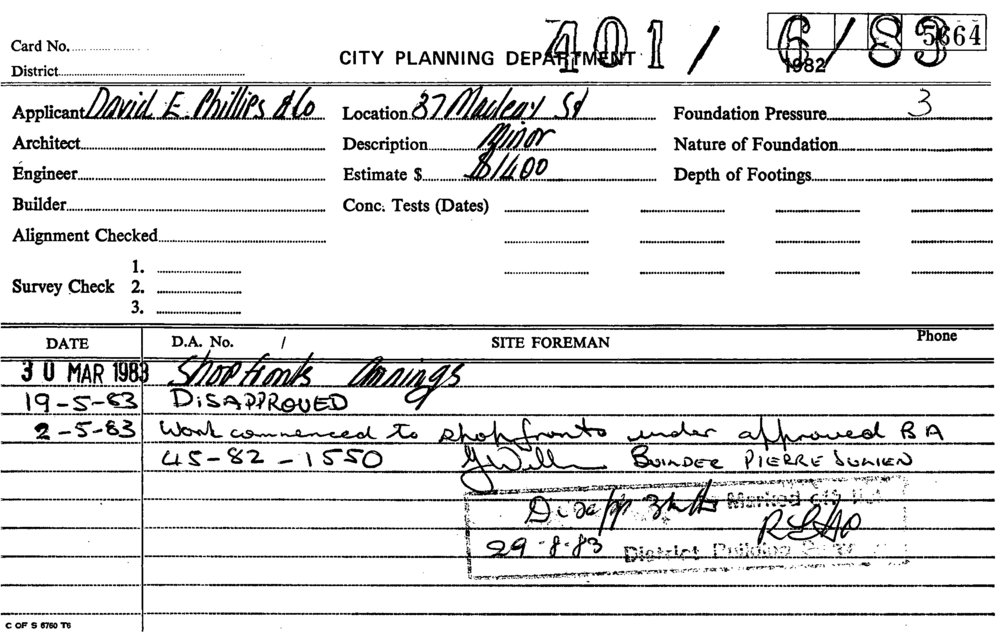 Card No.
CITY PLANNING DEPARTMENT 401/6/83 5664
1982
District
Applicant David E. Phillips & Co Location 37 Macleay St Foundation Pressure 3
Architect Description Minor Nature of Foundation
Engineer Estimate $ $1400 Depth of Footings
Builder Conc. Tests (Dates)
Alignment Checked
1.
Survey Check 2.
3.
DATE D.A. No. / SITE FOREMAN Phone
30 MAR 1983 Shopfronts Awnings
19-5-83 DISAPPROVED
2-5-83 Work commenced to shopfronts under approved BA
45-82-1550 BUILDER PIERRE JULIEN
Disapp Marked
29-8-83 District Building
C OF S 6760 T6